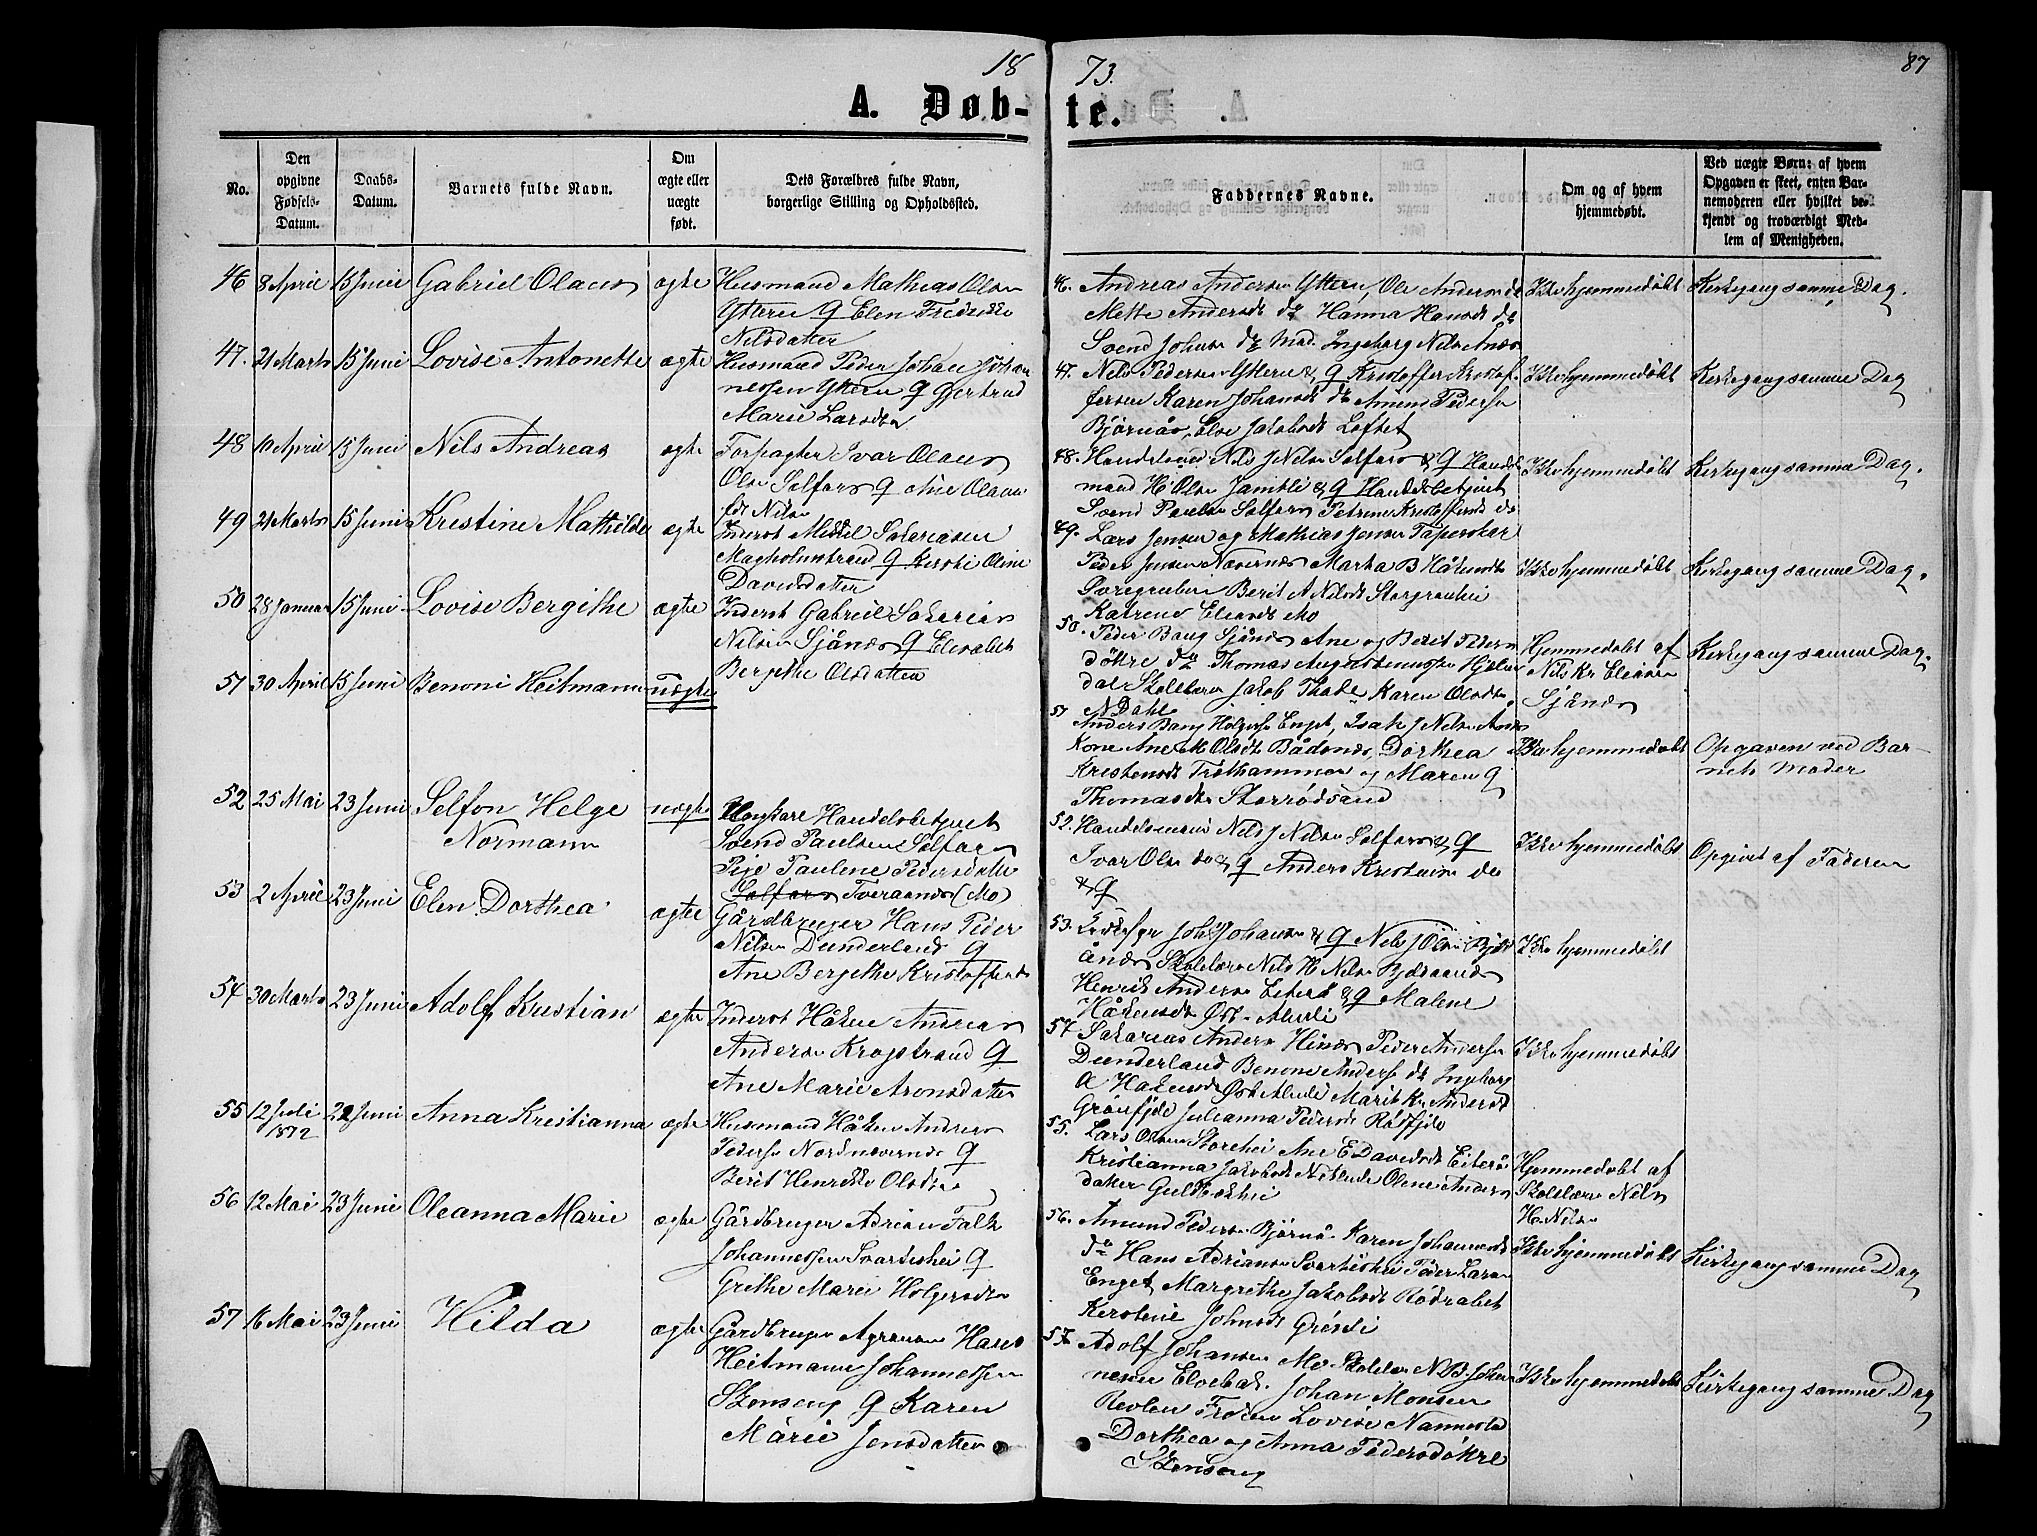 18 73. 87
A. Døb- te.
No.
Den opgivne Fødsels-Datum.
Daabs-Datum.
Barnets fulde Navn.
Om ægte eller uægte født.
Dets Forældres fulde Navn, borgerlige Stilling og Opholdssted.
Faddernes Navne.
Om og af hvem hjemmedøbt.
Ved uægte Børn: af hvem Opgaven er skeet, enten Barnemoderen eller hvilket bekjendt og troværdigt Medlem af Menigheden.
46 8 April 15 Juni Gabriel Olaus ægte Husmand Mathias Olsen
Ytteren G Elen Fredrikke
Nilsdatter
46. Andreas Andersen Ytteren, Ole Andersen do
Mette Andersdt do Hanna Hansdt do
Svend Johnsen do Mad. Ingeborg Nilsen
Ikke hjemmedøbt Kirkegang samme Dag.
47. 21 Marts 15 Juni Lovise Antonette ægte Husmand Peder Johan Johan
nessen Ytteren G Gjertrud
Marie Larsdtr
47. Nils Pedersen Ytteren & G Kristoffer Kristof
fersen Karen Johansdt do Amund Pedersen
Bjørnås, Else Jakobsdt Loftet
Ikke hjemmedøbt Kirkegang samme Dag
48 10 April 15 Juni Nils Andreas ægte Forpagter Ivar Olaus
Olsen Selfors G Ane Olava
født Nilsen
48. Handelsmand Nils J Nilsen Selfors & G Handels
mand H Olsen Jamtli & G Handelsbetjent
Svend Paulsen Selfors Petrine Kristoffersdt do
Ikke hjemmedøbt Kirkegang samme Dag.
49 21 Marts 15 Juni Kristine Mathilde ægte Inderst Mikkel Sakariasen
Magholmstrand G Kirstie Oline
Davidsdatter
49. Lars Jensen og Mathias Jensen Taperskar
Peder Jensen Nævernes Marta B Håkensdt
Bovregruben Berit A Nilsdt Storgruben
Katrine Eliasdt Mo
Ikke hjemmedøbt Kirkegang samme Dag.
50 28 Januar 15 Juni Lovise Bergithe ægte Inderst Gabriel Sakarias
Nilsen Sjånes G Elisabet
Bergithe Olsdatter
50. Peder Bang Sjånes Ane og Berit Peders
døtre do Thomas Augustinussen Hjelme
dal Skolelærer Jakob Thode Karen Olsdtr
N Dahl
Hjemmedøbt af
Nils Kr Eliasen
Sjånes
Kirkegang samme Dag.
51 30 April 15 Juni Benoni Heitmann uægte
51 Anders Bang Holgersen Enget, Isak J Nilsen
Kone Ane M Olsdt Bådsnes, Dorthea
Kristensdt Trolhammeren og Maren G
Thomasdtr Storrødsand
Ikke hjemmedøbt Opgaven ved Bar-
nets Moder
52 25 Mai 23 Juni Selfon Helge
Normann uægte Ungkarl Handelsbetjent
Svend Paulsen Selfors
Pige Paulene Pedersdatter
Selfors Tveraanes (Mo)
52. Handelsmand Nils J Nilsen Selfors & G
Ivar Olsen do & G Anders Kristensen do
& G
Ikke hjemmedøbt Opgivet af Faderen
53 2 April 23 Juni Elen Dorthea ægte Gårdbruger Hans Peder
Nilsen Dunderland G
Ane Bergithe Kristoffersdtr
53. Johs Johansen & G Nils J Olsen
ånes Skolelærer Nils H Nilsen Bjeldaanes
Henrik Andersen Eiterå & G Malene
Håkensdt Øst-Almli
Ikke hjemmedøbt
54 30 Marts 23 Juni Adolf Kristian ægte Inderst Håken Andreas
Andersen Krogstrand G
Ane Marie Aronsdatter
54. Sakarias Andersen Hines Peder Andersen
Dunderland Benone Anders do Ingeborg
A Hakensdt Øst Almli Marit Kr Andersdt
Grønfjeld Julianna Pedersdt Rødfjeld
Ikke hjemmedøbt
55 12 Juli
1872 22 Juni Anna Kristianna ægte Husmand Håken Andreas
Pedersen Nordnævernes G
Berit Henrikke Olsdtr
55. Lars Olsen Storehei Ane E Davidsdt Eiterå
Kristianna Jakobsdt Olene Anders
datter Guldbekhei
Hjemmedøbt af
Skolelærer Nils
H. Nilsen
56 12 Mai 23 Juni Oleanna Marie ægte Gårdbruger Adrian Falk
Johannessen Svartishei G
Grethe Marie Holgersdtr
56. Amund Pedersen Bjørnå Karen Johannesdt
do Hans Adriansen Svartishei Peder Larsen
Enget Margrethe Jakobsdt Rødrabet
Kerstine Johnsdt Grisli
Ikke hjemmedøbt Kirkegang samme Dag
57 16 Mai 23 Juni Hilda ægte Gårdbruger Agronom Hans
Heitmann Johannessen
Stenseng G Karen
Marie Jensdatter
57 Adolf Johansen Mo Skolelærer N. B. Johan
nesen Elvebak. Johan Monsen
Revlen Frøken Lovise Nannestad
Dorthea og Anna Pedersdøtre
Stenseng
Ikke hjemmedøbt Kirkegang samme Dag